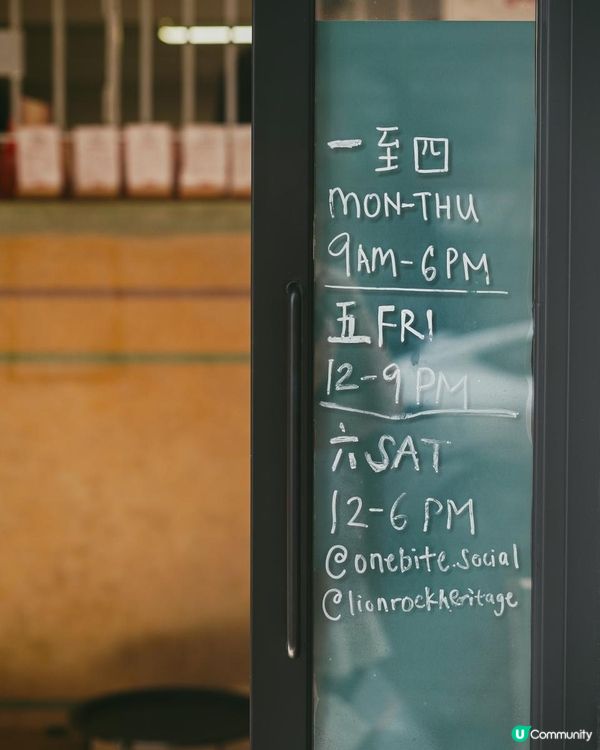 一至四
MON-THU
9AM-6PM
五 FRI
12-9PM
六 SAT
12-6PM
@onebite.social
@lionrockheritage
U Community